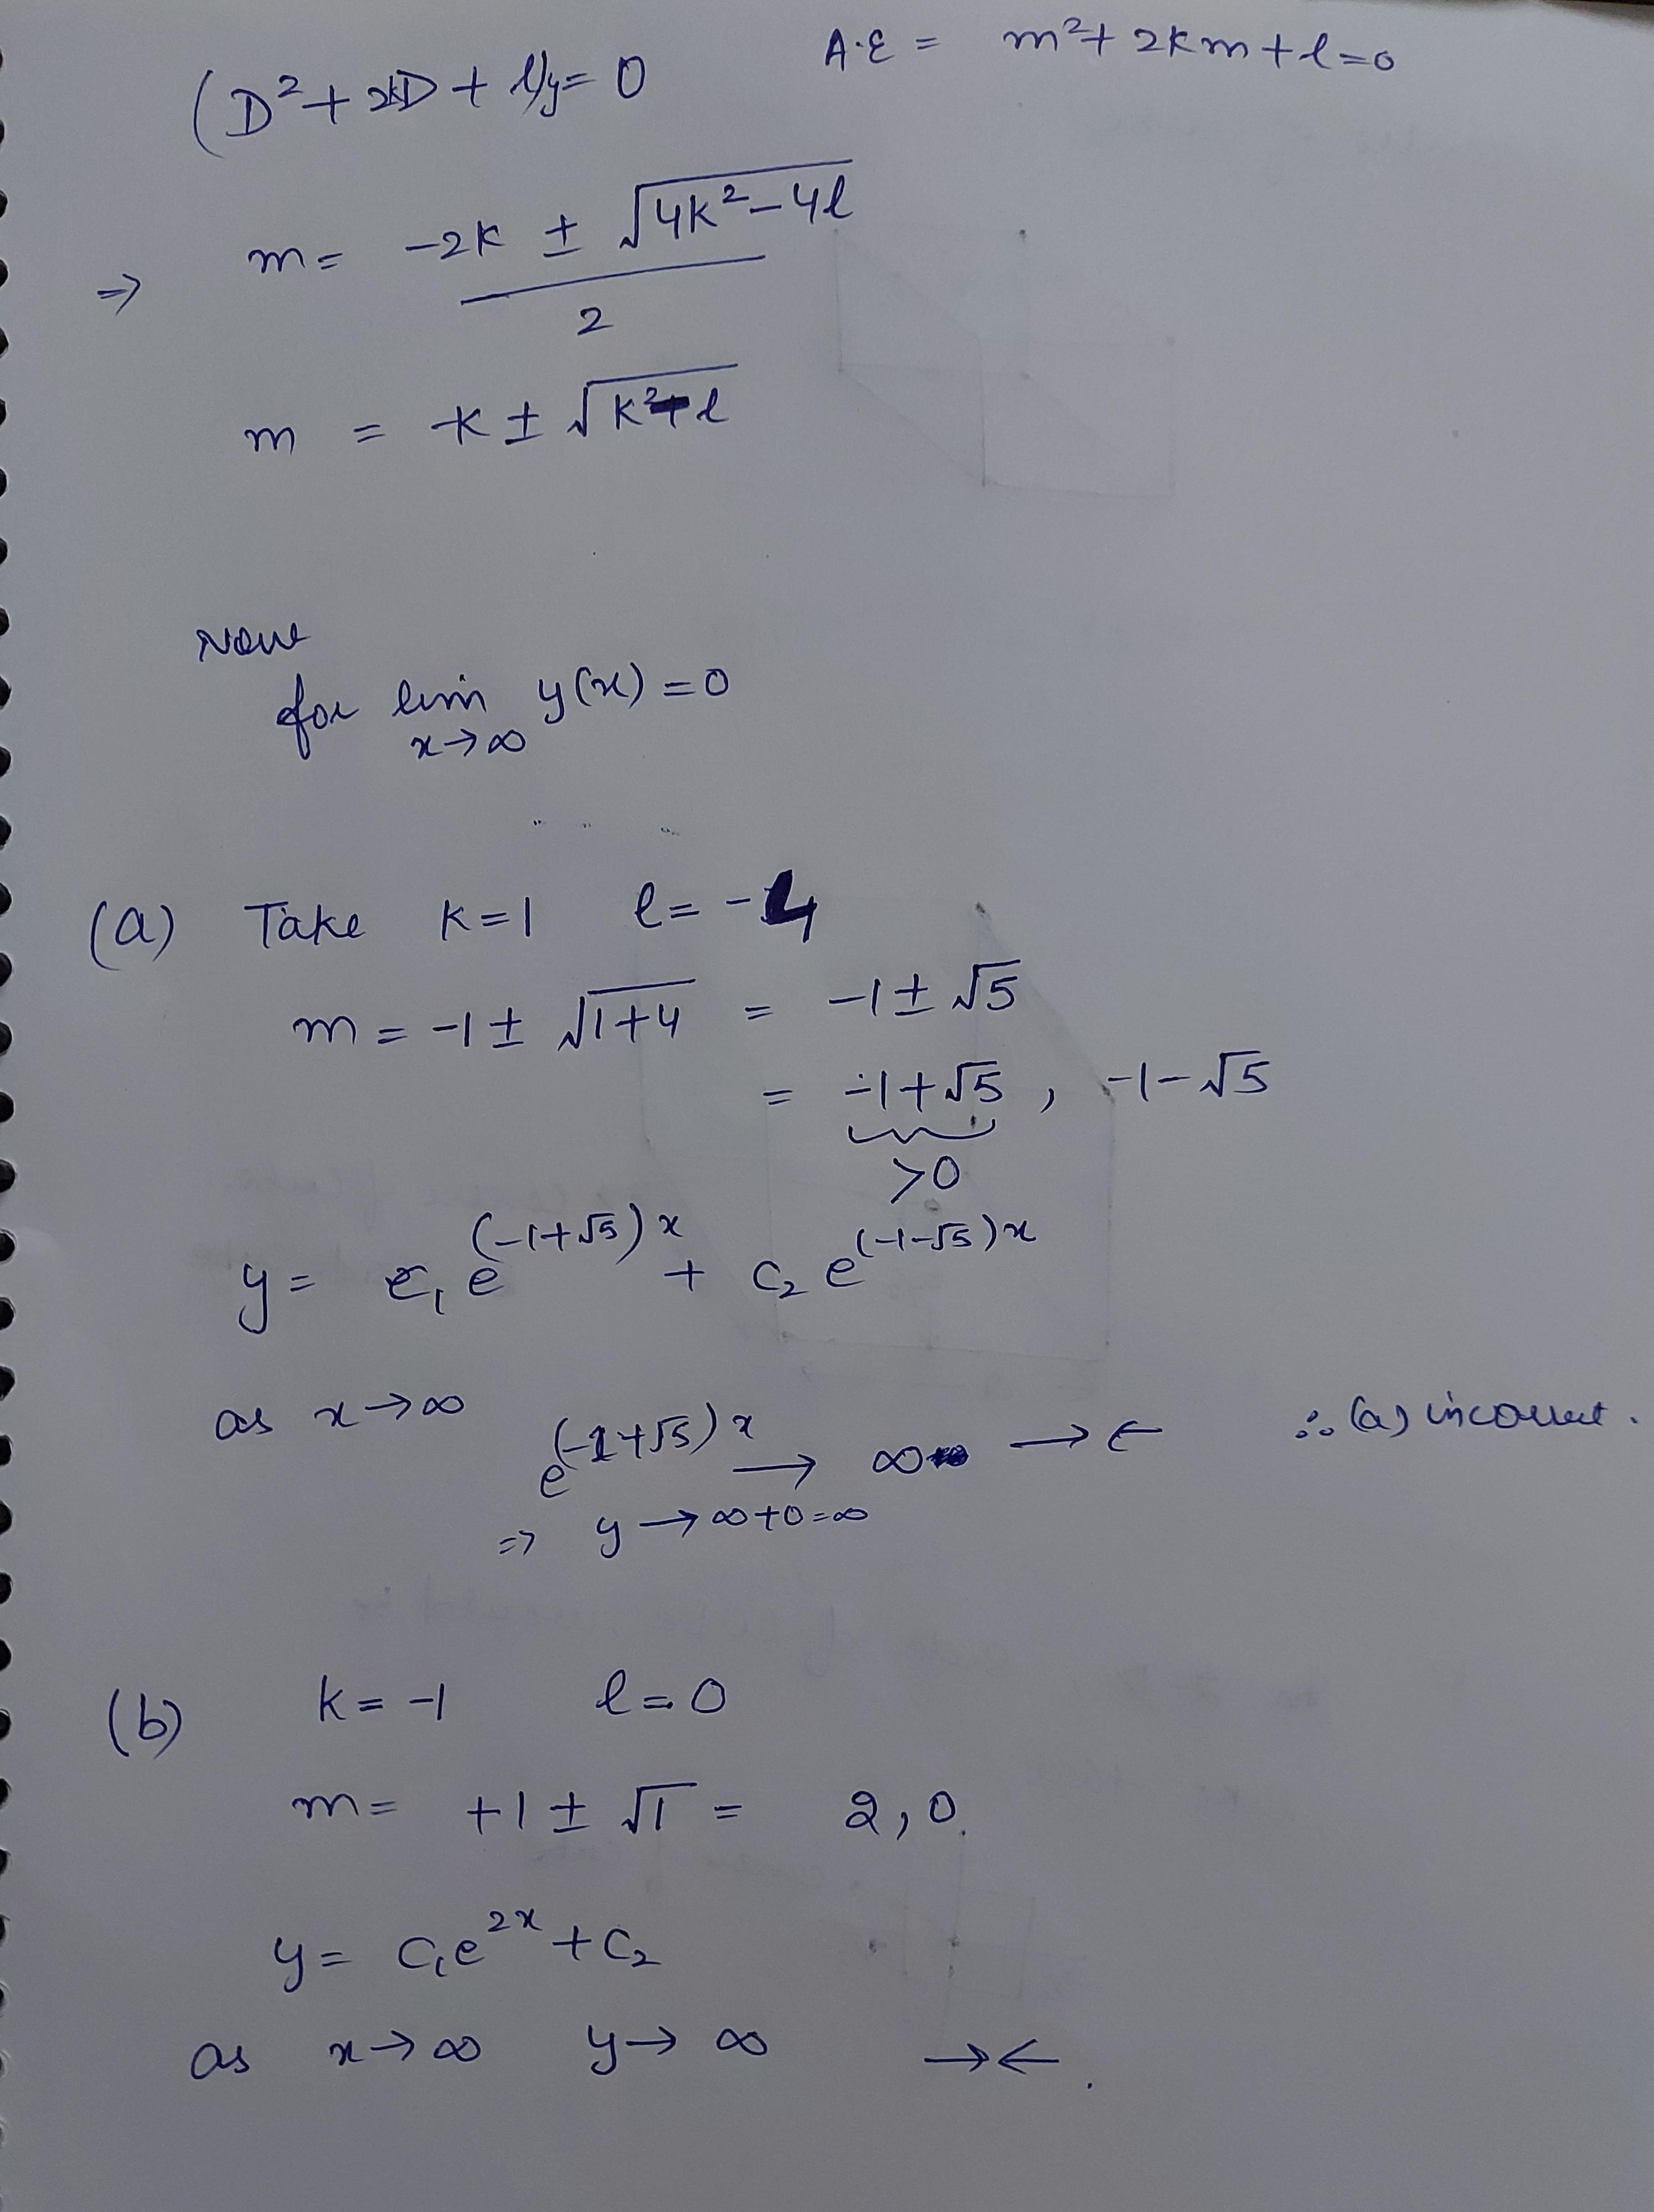 (D² + 2kD + l)y = 0
A.E = m² + 2km + l = 0
⇒ m = (-2k ± √(4k² - 4l)) / 2
m = -k ± √(k² - l)
Now
for lim y(x) = 0
x→∞
(a) Take k=1 l = -4
m = -1 ± √(1+4) = -1 ± √5
= -1+√5 , -1-√5
>0
y = c₁ e^((-1+√5)x) + c₂ e^((-1-√5)x)
as x→∞
e^((-1+√5)x) → ∞ →← ∴ (a) incorrect.
⇒ y → ∞+0=∞
(b) k = -1 l = 0
m = +1 ± √1 = 2, 0.
y = c₁e^(2x) + c₂
as x→∞ y→ ∞ →← .